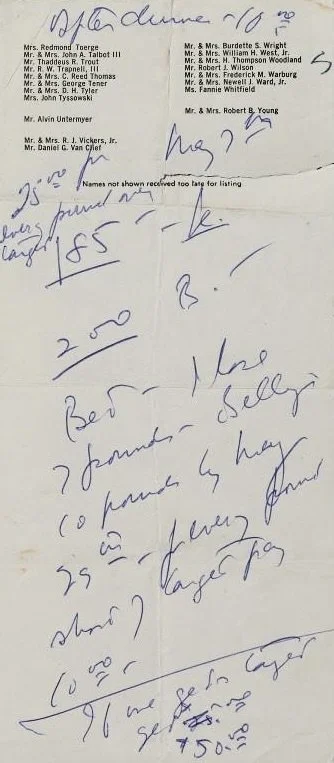 After dinner - 10 00
Mrs. Redmond Toerge
Mr. & Mrs. John A. Talbot III
Mr. Thaddeus R. Trout
Mr. R. W. Trapnell, III
Mr. & Mrs. C. Reed Thomas
Mr. & Mrs. George Tener
Mr. & Mrs. D. H. Tyler
Mrs. John Tyssowski
Mr. Alvin Untermyer
Mr. & Mrs. R. J. Vickers, Jr.
Mr. Daniel G. Van Clief
Mr. & Mrs. Burdette S. Wright
Mr. & Mrs. William H. West, Jr.
Mr. & Mrs. H. Thompson Woodland
Mr. Robert J. Wilson
Mr. & Mrs. Frederick M. Warburg
Mr. & Mrs. Newell J. Ward, Jr.
Ms. Fannie Whitfield
Mr. & Mrs. Robert B. Young
May 7th
Names not shown received too late for listing
25.00 for
every pound over
target
185 -
200 B. -
Bet - I lose
7 pounds -
10 pounds by May
- for every pound
short of target pay
10 00 -
If one gets target
gets
$50.00